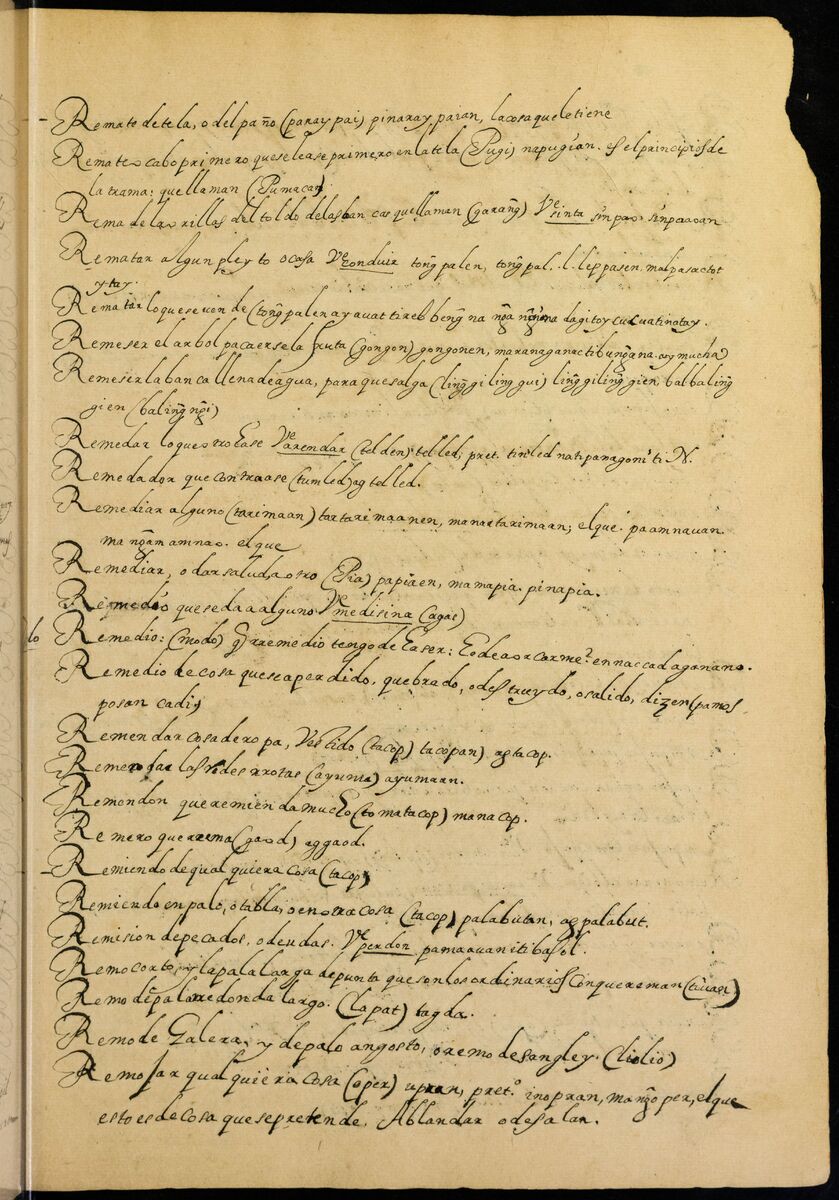 Remate de tela, o del paño (paraypai) pinaraypaian, la cosa que le tiene
Remate o cabo primero que se lease primero en la tela (Pugi) napugian. es el principio de
la trama: que llaman (Pumacan)
Rema de las orillas del toldo de las bancas que llaman (garang̃) Ve sinta sinpaan
Rematar algun pleyto o casa Ve conduir tong̃palen, tong̃pal. l. leppasen. malpasac toy
ytay.
Rematar lo que se ven de (tong̃palen ay avat tireb beng̃ na dagitoy cucuatinatay.
Remeser el arbol pa caerse la fruta (gongon) gongonen, maranaganac ti bung̃ana. ay mucha)
Remeser la banca llena de agua, para que salga (ling̃giling̃gui) ling̃giling̃gien, balbaling̃
gien (baling̃ng̃i)
Remedar lo que otro hase Ve arendar (tulden) tulled, pret. tinled nati panagoni ti N.
Remedador que contraase (tumled) ag tulled.
Remediar alguno (tarimaan) tartarimaanen, manartarimaan; el que. paamnauan.
mang̃amamnao. el que
Remediar, o dar salud, a otro (Pia) papiaen, mamapia. pinapia.
Remedio que se da a alguno Ve medisina (agas)
lo Remedio: (modo) q̃ rremedio tengo de haser: en nac cad aganano.
Remedio de cosa que sea perdido, quebrado, o destruydo, o salido, dizen (pamos
posan cadi)
Remendar cosa de ropa, Vestido (tacop) tacopan) agtacop.
Remendar las redes rrotas (ayuma) ayumaan.
Remendon que remienda mucho (tomatacop) manacop.
Remero que rrema (gaod) aggaod.
Remiendo de qualquiera cosa (tacop)
Remiendo en palo, o tabla, o en otra cosa (tacop) palabutan, agpalabut.
Remision de pecados, o deudas. Ve perdon pamaauan iti basol.
Remo corto, y la pala larga de punta que son los ordinarios con que reman
Remo de pala rredonda largo. (lapat) tagda.
Remo de Galera, y de palo angosto, o remo de sangley. (liolio)
Remojar qualquiera cosa (oper) upran, pret.º inopran, mang̃oper, el que
esto es de cosa que se pretende. Ablandar o desalar.